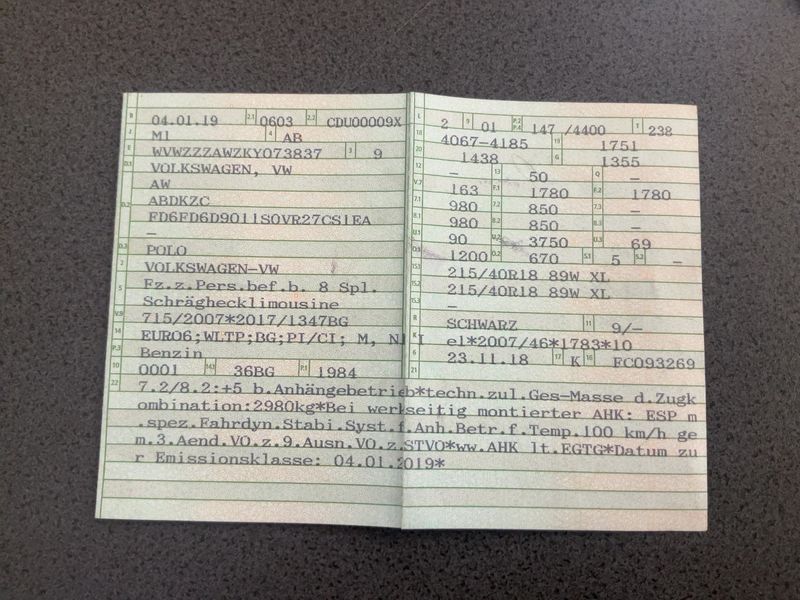 B 04.01.19 2.1 0603 2.2 CDU00009X
J M1 4 AB
E WVWZZZAWZKY073837 3 9
D.1 VOLKSWAGEN, VW
AW
D.2 ABDKZC
FD6FD6D9011S0VR27CS1EA
—
D.3 POLO
2 VOLKSWAGEN-VW
5 Fz.z.Pers.bef.b. 8 Spl.
Schräghecklimousine
V.9 715/2007*2017/1347BG
14 EURO6;WLTP;BG;PI/CI; M, N1 I
P.3 Benzin
10 0001 14.1 36BG P.1 1984
L 2 9 01 P.2 P.4 147 /4400 T 238
18 4067-4185 19 1751
20 1438 G 1355
12 — 13 50 Q —
V.7 163 F.1 1780 F.2 1780
7.1 980 7.2 850 7.3 —
8.1 980 8.2 850 8.3 —
U.1 90 U.2 3750 U.3 69
O.1 1200 O.2 670 S.1 5 S.2 —
15.1 215/40R18 89W XL
15.2 215/40R18 89W XL
15.3 —
R SCHWARZ 11 9/—
K e1*2007/46*1783*10
6 23.11.18 17 K 16 FC093269
21
22 7.2/8.2:+5 b.Anhängebetrieb*techn.zul.Ges-Masse d.Zugk
ombination:2980kg*Bei werkseitig montierter AHK: ESP m
.spez.Fahrdyn.Stabi.Syst.f.Anh.Betr.f.Temp.100 km/h ge
m.3.Aend.VO.z.9.Ausn.VO.z.STVO*ww.AHK lt.EGTG*Datum zu
r Emissionsklasse: 04.01.2019*